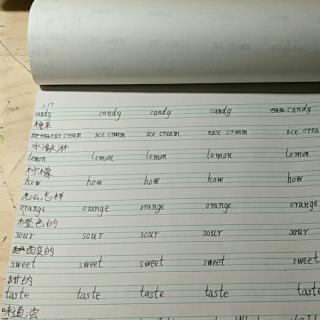 candy candy candy candy candy
糖果
ice cream ice cream ice cream ice cream ice cream
冰激淋
lemon lemon lemon lemon lemon
柠檬
how how how how how
怎么,怎样
orange orange orange orange orange
橙色的
sour sour sour sour sour
酸的
sweet sweet sweet sweet sweet
甜的
taste taste taste taste taste
味道;尝